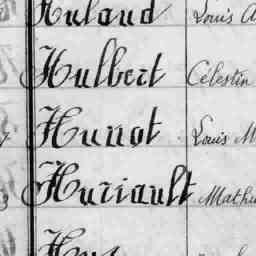 Huland Louis
Hulbert Célestin
Hunot Louis M
Huriault Mathu